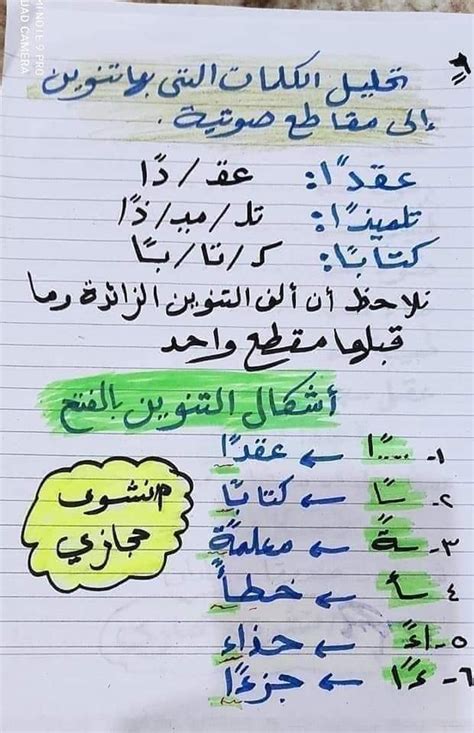 تحليل الكلمات التى بها تنوين
إلى مقاطع صوتية.
عقدًا: عقـ/دًا
تلميذًا: تلـ/ميـ/ذًا
كتابًا: كـ/تا/بًا
نلاحظ أن ألف التنوين الزائدة وما
قبلها مقطع واحد
أشكال التنوين بالفتح
١- ....ًا ← عقدًا
٢- ـًا ← كتابًا
٣- ـةً ← معلمةً
٤- ـأً ← خطأً
٥- اءً ← حذاءً
٦- ءًا ← جزءًا
م/نشوى
حجازي